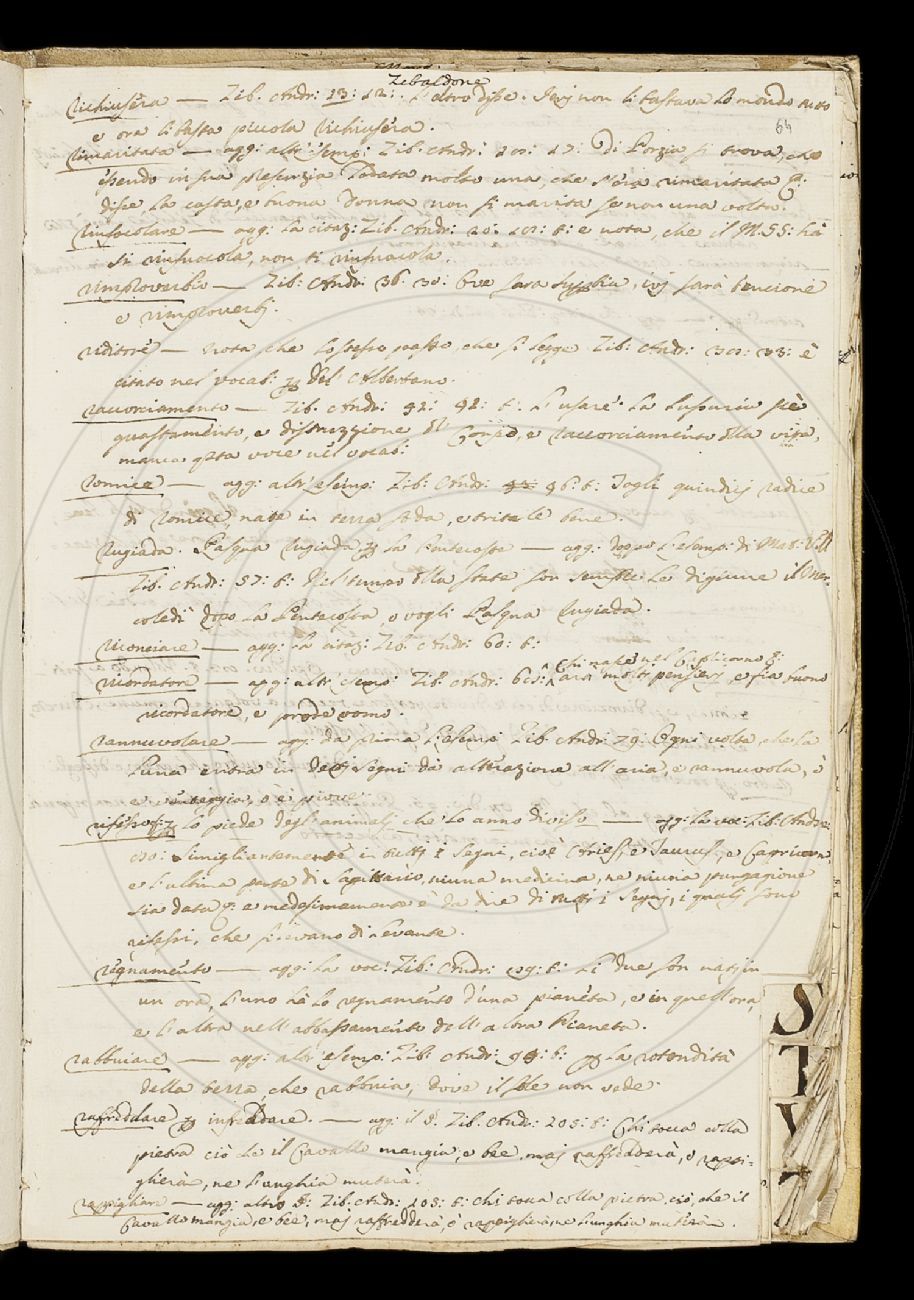 Zibaldone
64
richiusèra — Zib: Andr: 13: 12: L'altro disse. Ieri non li bastava lo mondo tutto
e ora li basta piccola richiusèra.
rimaritata — agg: altr'esemp: Zib: Andr: 17: Di Porzia si trova, che
essendo in sua presenzia lodata molto una, che s'era rimaritata
disse, la casta, e buona donna non si marita se non una volta.
rinfocolare — agg: la citaz: Zib: Andr: 20: t: e nota, che il M.SS: hà
si rinfuocola, non ti rinfuocola.
rimproverbio — Zib: Andr: 36. 30: Ove sarà superbia, ivi sarà tencione
e rimproverbj.
riditore — nota che lo stesso passo, che si legge Zib: Andr: è
citato nel vocab: del Albertano.
raccorciamento — Zib: Andr: 42: t: L'usare la lussuria si è
guastamento, e distruzzione di Corpo, e raccorciamento della vita,
manca questa voce nel vocab:
romice — agg: altr'esemp: Zib: Andr: 46: t: Togli quindicj radice
di romice, nate in terra soda, e tritale bene.
rugiada. Pasqua rugiada la Pentecoste — agg: doppo l'esemp: di Mat: Vill
Zib: Andr: 57: t: Nel tempo della state son sempre le digiune il Mer-
coledì dopo la Pentecosta, o vogli Pasqua rugiada.
riconciare — agg: la citaz: Zib: Andr: 60: t:
Chi nasce nel Capricorno
ricordatore — agg: altr'esemp: Zib: Andr: arà molti pensierj, e fia buono
ricordatore, e prode uomo.
rannuvolare — agg: da prima l'esemp: Zib: Andr: 79: Ogni volta, che la
Luna entra in detti Segni dà alterazione all'aria, e rannuvola, è
e vinteggia, o e' piove.
lo piede degl'animalj che lo anno diviso — agg: la voc: Zib: Andr:
Simigliantemente in tuttj i Segni, cioè Aries, e Taurus, e Capricorn,
e l'ultima parte di Sagittario, niuna medicina, ne niuna purgagione
sia data e medesimamente è da dire di tuttj i Segnj, i qualj sono
che si levano di Levante.
regnamento — agg: la voc: Zib: Andr: t: Li due son natj in
un ora, l'uno hà lo regnamento d'una pianeta, e in quell'ora,
e l'altra nell'abbassamento dell'altra Pianeta.
rabbuiare — agg: altr'esemp: Zib: Andr: t: la rotondità
della terra, che rabbuia, dove il sole non vede.
raffreddare infreddare. — agg: il Zib: Andr: 103: t: Chi tocca colla
pietra ciò che il Cavallo mangia, e bee, maj raffredderà, o rappi-
glierà, ne l'unghia muterà.
rappigliare — agg: altro Zib: Andr: 103: t: chi tocca colla pietra ciò, che il
Cavallo mangia, e bee, maj raffredderà, ò rappiglierà, ne l'unghia muterà.
S
T
V